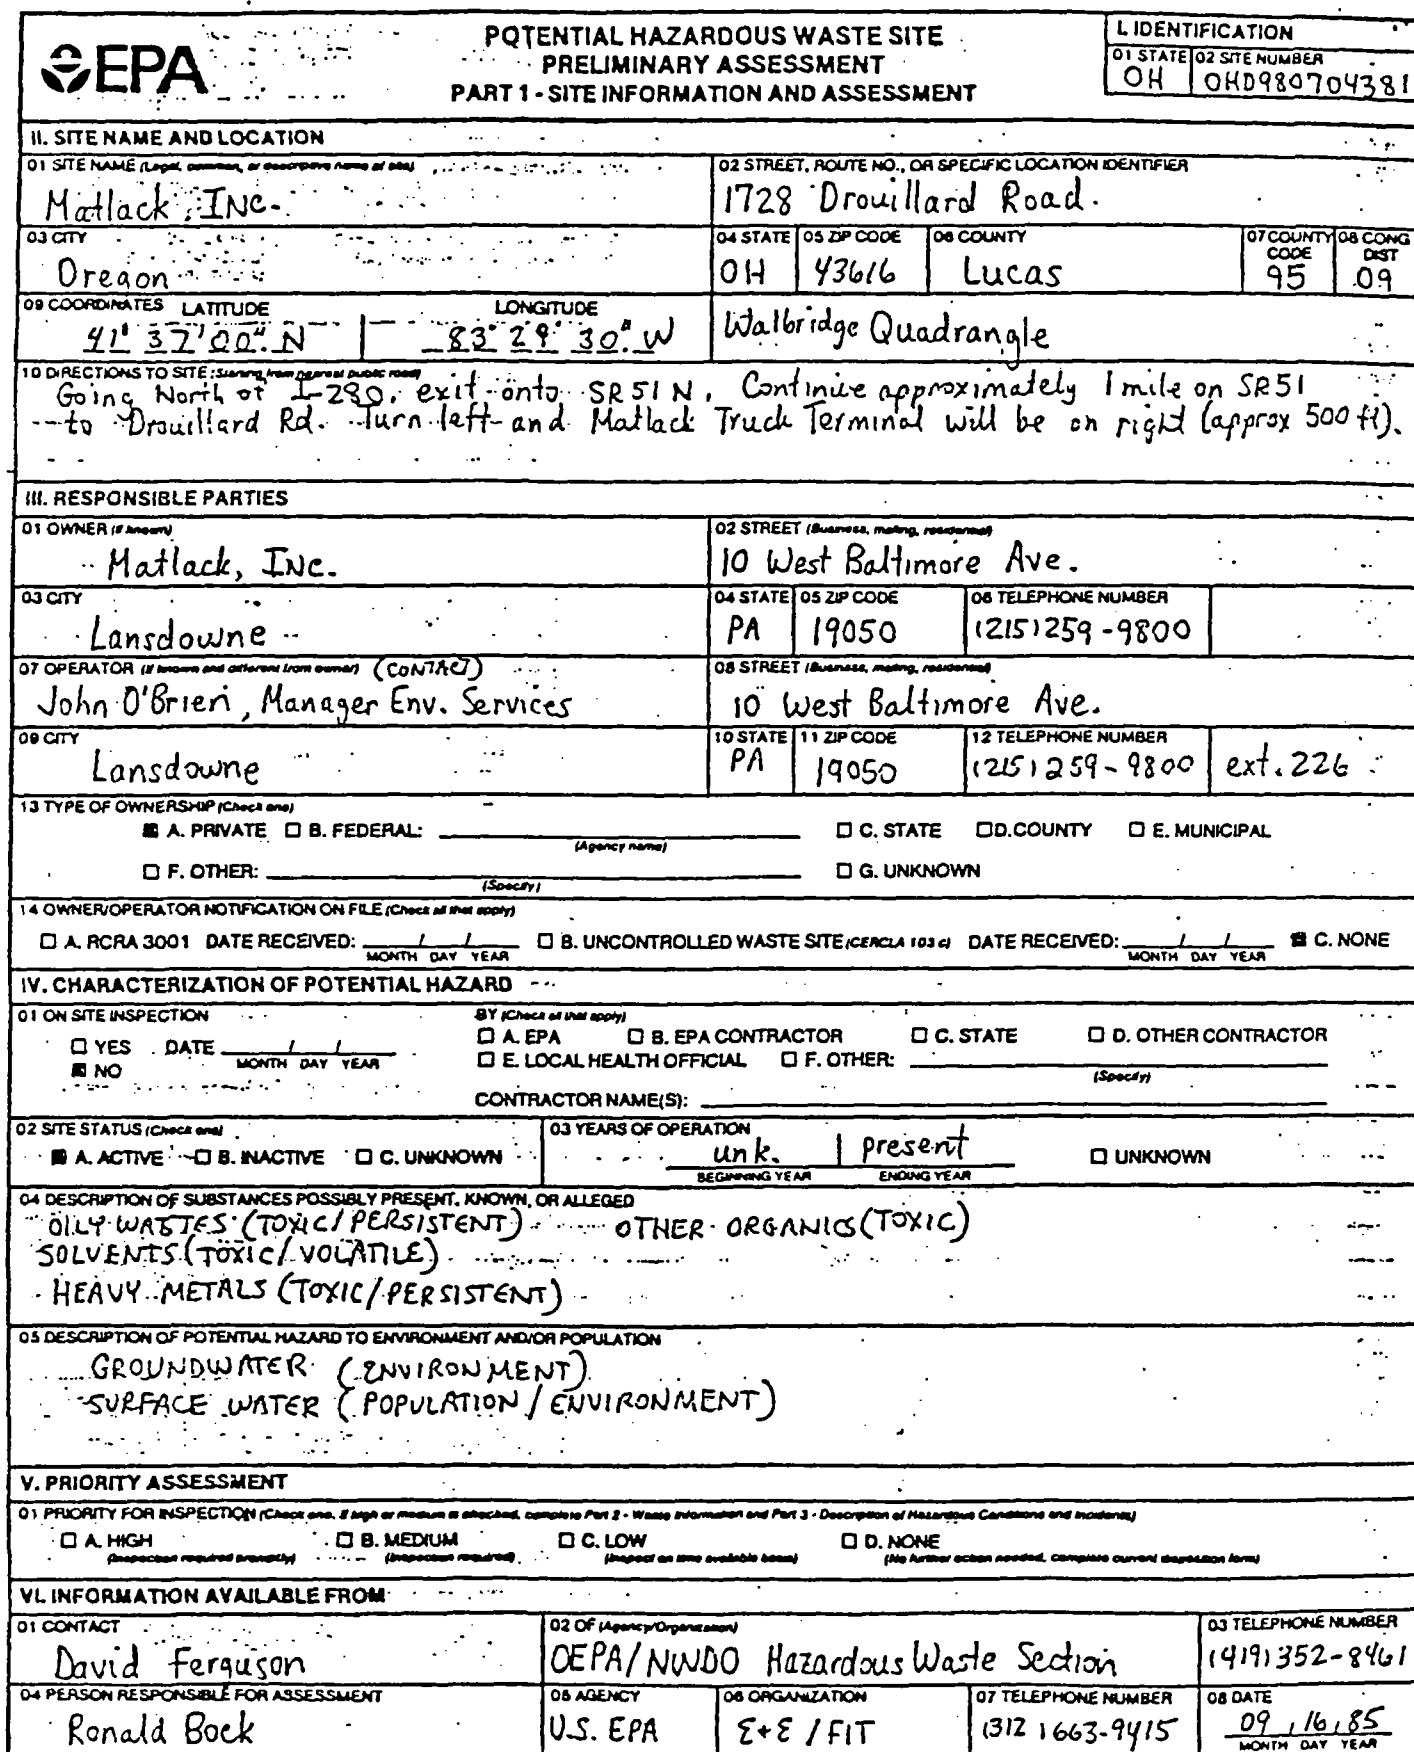 EPA
POTENTIAL HAZARDOUS WASTE SITE
PRELIMINARY ASSESSMENT
PART 1 - SITE INFORMATION AND ASSESSMENT
I. IDENTIFICATION
01 STATE 02 SITE NUMBER
OH OHD980704381
II. SITE NAME AND LOCATION
01 SITE NAME (Legal, common, or descriptive name of site)
Matlack, INc.
02 STREET, ROUTE NO., OR SPECIFIC LOCATION IDENTIFIER
1728 Drouillard Road.
03 CITY
Oregon
04 STATE 05 ZIP CODE 06 COUNTY 07 COUNTY CODE 08 CONG DIST
OH 43616 Lucas 95 09
09 COORDINATES LATITUDE LONGITUDE
41° 37' 00" N 83° 29' 30" W
Walbridge Quadrangle
10 DIRECTIONS TO SITE (Starting from nearest public road)
Going North of I-280, exit onto SR 51 N. Continue approximately 1 mile on SR51
to Drouillard Rd. Turn left and Matlack Truck Terminal will be on right (approx 500 ft).
III. RESPONSIBLE PARTIES
01 OWNER (If known)
Matlack, INc.
02 STREET (Business, mailing, residential)
10 West Baltimore Ave.
03 CITY
Lansdowne
04 STATE 05 ZIP CODE 06 TELEPHONE NUMBER
PA 19050 (215) 259-9800
07 OPERATOR (If known and different from owner) (CONTACT)
John O'Brien, Manager Env. Services
08 STREET (Business, mailing, residential)
10 West Baltimore Ave.
09 CITY
Lansdowne
10 STATE 11 ZIP CODE 12 TELEPHONE NUMBER
PA 19050 (215) 259-9800 ext. 226
13 TYPE OF OWNERSHIP (Check one)
A. PRIVATE B. FEDERAL: (Agency name) C. STATE D. COUNTY E. MUNICIPAL
F. OTHER: (Specify) G. UNKNOWN
14 OWNER/OPERATOR NOTIFICATION ON FILE (Check all that apply)
A. RCRA 3001 DATE RECEIVED: / / B. UNCONTROLLED WASTE SITE (CERCLA 103 c) DATE RECEIVED: / / C. NONE
MONTH DAY YEAR MONTH DAY YEAR
IV. CHARACTERIZATION OF POTENTIAL HAZARD
01 ON SITE INSPECTION
YES DATE / /
MONTH DAY YEAR
NO
BY (Check all that apply)
A. EPA B. EPA CONTRACTOR C. STATE D. OTHER CONTRACTOR
E. LOCAL HEALTH OFFICIAL F. OTHER:
(Specify)
CONTRACTOR NAME(S):
02 SITE STATUS (Check one)
A. ACTIVE B. INACTIVE C. UNKNOWN
03 YEARS OF OPERATION
unk. present UNKNOWN
BEGINNING YEAR ENDING YEAR
04 DESCRIPTION OF SUBSTANCES POSSIBLY PRESENT, KNOWN, OR ALLEGED
OILY WASTES (TOXIC/PERSISTENT) OTHER ORGANICS (TOXIC)
SOLVENTS (TOXIC/VOLATILE)
HEAVY METALS (TOXIC/PERSISTENT)
05 DESCRIPTION OF POTENTIAL HAZARD TO ENVIRONMENT AND/OR POPULATION
GROUNDWATER (ENVIRONMENT)
SURFACE WATER (POPULATION / ENVIRONMENT)
V. PRIORITY ASSESSMENT
01 PRIORITY FOR INSPECTION (Check one. If high or medium is checked, complete Part 2 - Waste Information and Part 3 - Description of Hazardous Conditions and Incidents)
A. HIGH B. MEDIUM C. LOW D. NONE
(Inspection required promptly) (Inspection required) (Inspect on time available basis) (No further action needed, complete current disposition form)
VI. INFORMATION AVAILABLE FROM
01 CONTACT
David Ferguson
02 OF (Agency/Organization)
OEPA/NWDO Hazardous Waste Section
03 TELEPHONE NUMBER
(419) 352-8461
04 PERSON RESPONSIBLE FOR ASSESSMENT
Ronald Bock
05 AGENCY
U.S. EPA
06 ORGANIZATION
E+E / FIT
07 TELEPHONE NUMBER
(312) 663-9415
08 DATE
09 / 16 / 85
MONTH DAY YEAR